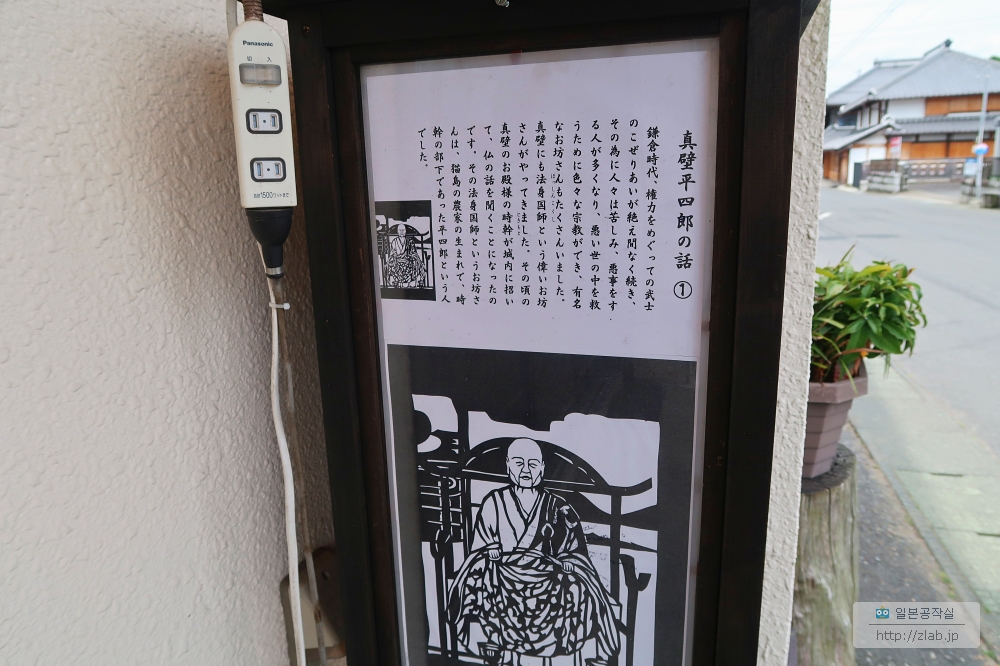 Panasonic
切 入
合計1500ワットまで
真壁平四郎の話 ①
鎌倉時代、権力をめぐっての武士
のこぜりあいが絶え間なく続き、
その為に人々は苦しみ、悪事をす
る人が多くなり、悪い世の中を救
うために色々な宗教ができ、有名
なお坊さんもたくさんいました。
真壁にも法身国師という偉いお坊
さんがやってきました。その頃の
真壁のお殿様の時幹が城内に招い
て、仏の話を聞くことになったの
です。その法身国師というお坊さ
んは、猫島の農家の生まれで、時
幹の部下であった平四郎という人
でした。
일본공작실
http://zlab.jp